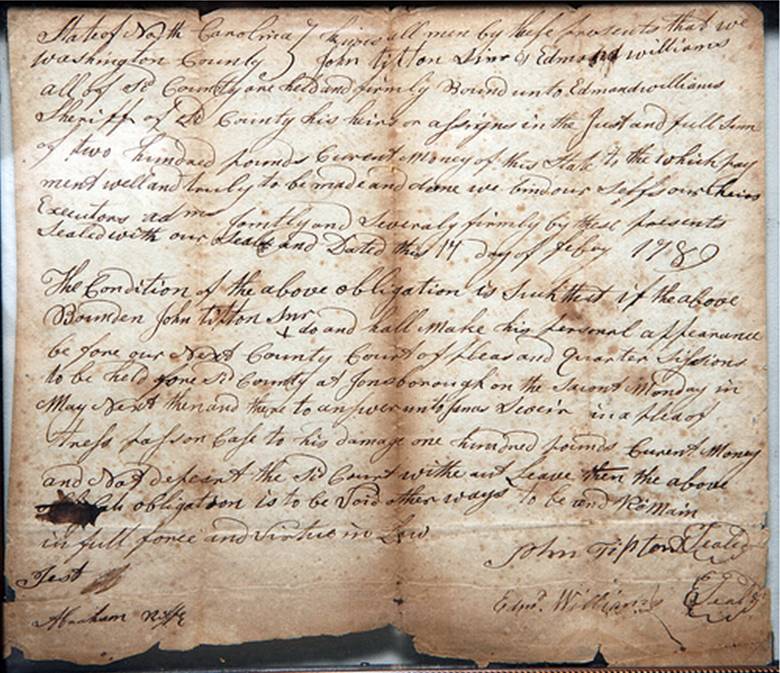 State of North Carolina } Know all men by these presents that we
Washington County } John Tipton Sinr & Edmond williams
all of Sd County are held and firmly Bound unto Edmand williams
Sheriff of Sd County his heirs or assigns in the Just and full Sum
of two hundred pounds Current Money of this State to the which pay
ment well and truly to be made and done we bind our Selfs our heirs
Executors adms Jointly and Severaly firmly by these presents
Sealed with our Seals and Dated this 14 day of febry 1789
The Condition of the above obligation is Such that if the above
Bounden John Tipton Snr do and hall Make his personal appearance
be fore our Next County Court of pleas and Quarter Sissions
to be held fore Sd County at Jonsborough on the Monday in
May Next then and there to answer unto in a plea of
tress pass on Case to his damage one hundred pounds Curent Money
and Not depeart the Sd Court withe out Leave then the above
obligation is to be Void other ways to be and Remain
in full force and Virtue in Law
John Tipton Seal
Test
Edmd. Williams Seal
Abraham